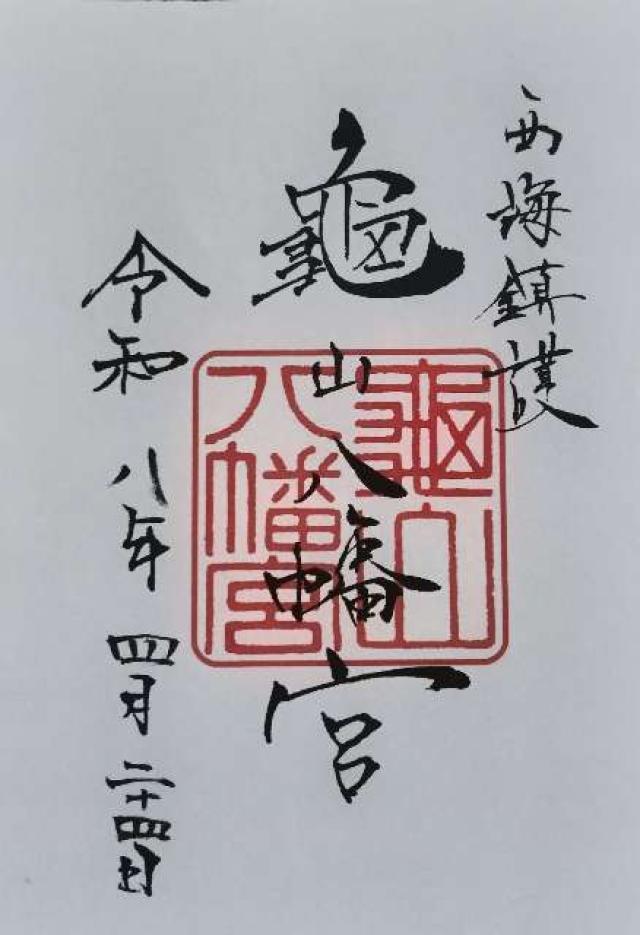 西海鎮護
龜山八幡宮
龜山八幡宮
令和八年四月二十四日